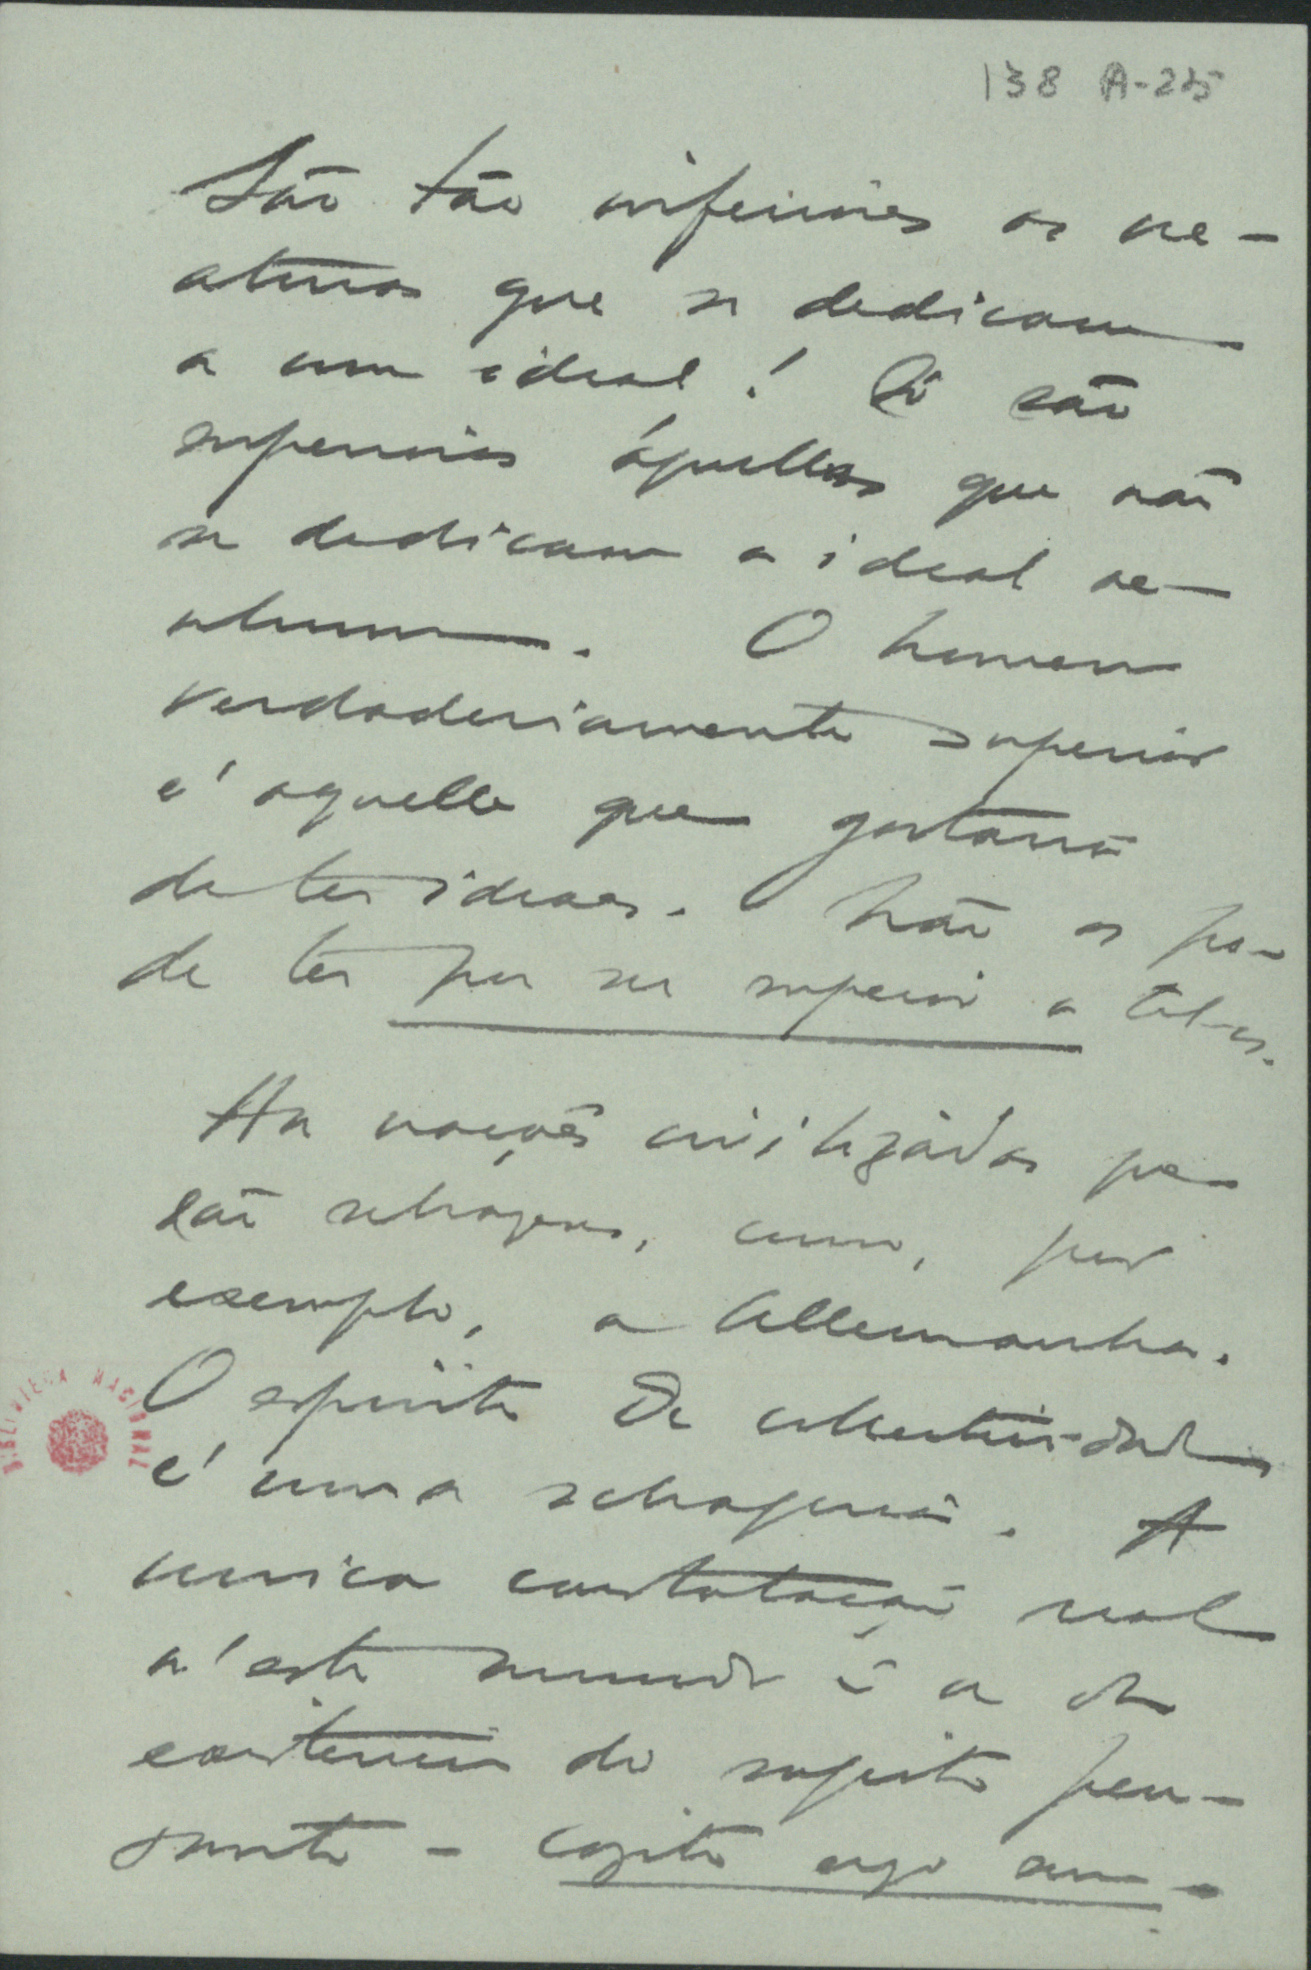 138 A-25
São tão inferiores as cre-
aturas que se dedicam
a um ideal! Só são
superiores áquellas que não
se dedicam a ideal ne-
nhum. O homem
verdadeiramente superior
é aquelle que gostaria
de ter ideaes. Não os po-
de ter por ser superior a tel-os.
Ha nações civilizadas que
são selvagens, como, por
exemplo, a Allemanha.
O espirito de collectividade
é uma selvageria. A
unica constatação real
n'este mundo é a da
existencia do sujeito pen-
sante - cogito ergo sum -
BIBLIOTECA NACIONAL